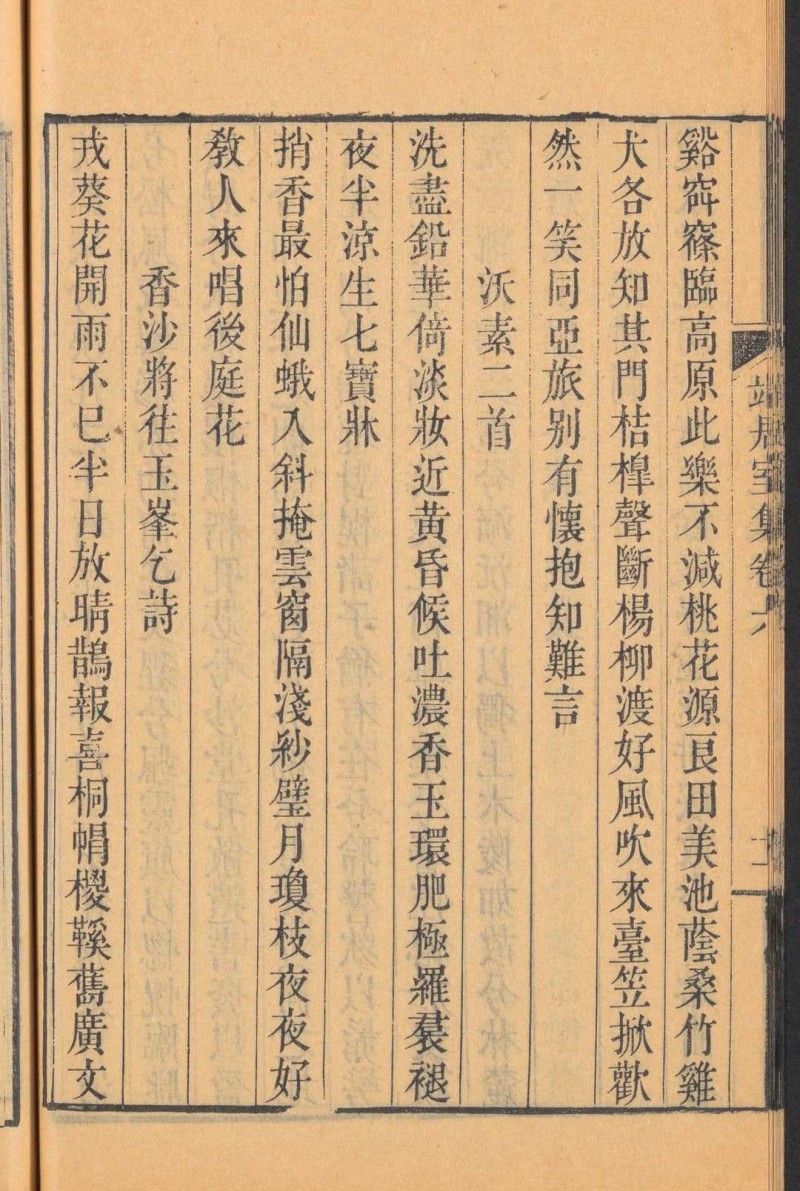 谿窏窱臨高原此樂不減桃花源良田美池蔭桑竹雞
犬各放知其門桔槹聲斷楊柳渡好風吹來臺笠掀歡
然一笑同亞旅别有懷抱知難言
沃素二首
洗盡鉛華倚淡妝近黄昏候吐濃香玉環肥極羅裠褪
夜半涼生七寶牀
捎香最怕仙蛾入斜掩雲窗隔淺紗璧月瓊枝夜夜好
敎人來唱後庭花
香沙將往玉峯乞詩
戎葵花開雨不巳半日放晴鵲報喜桐帽椶鞵舊廣文
居室集卷六